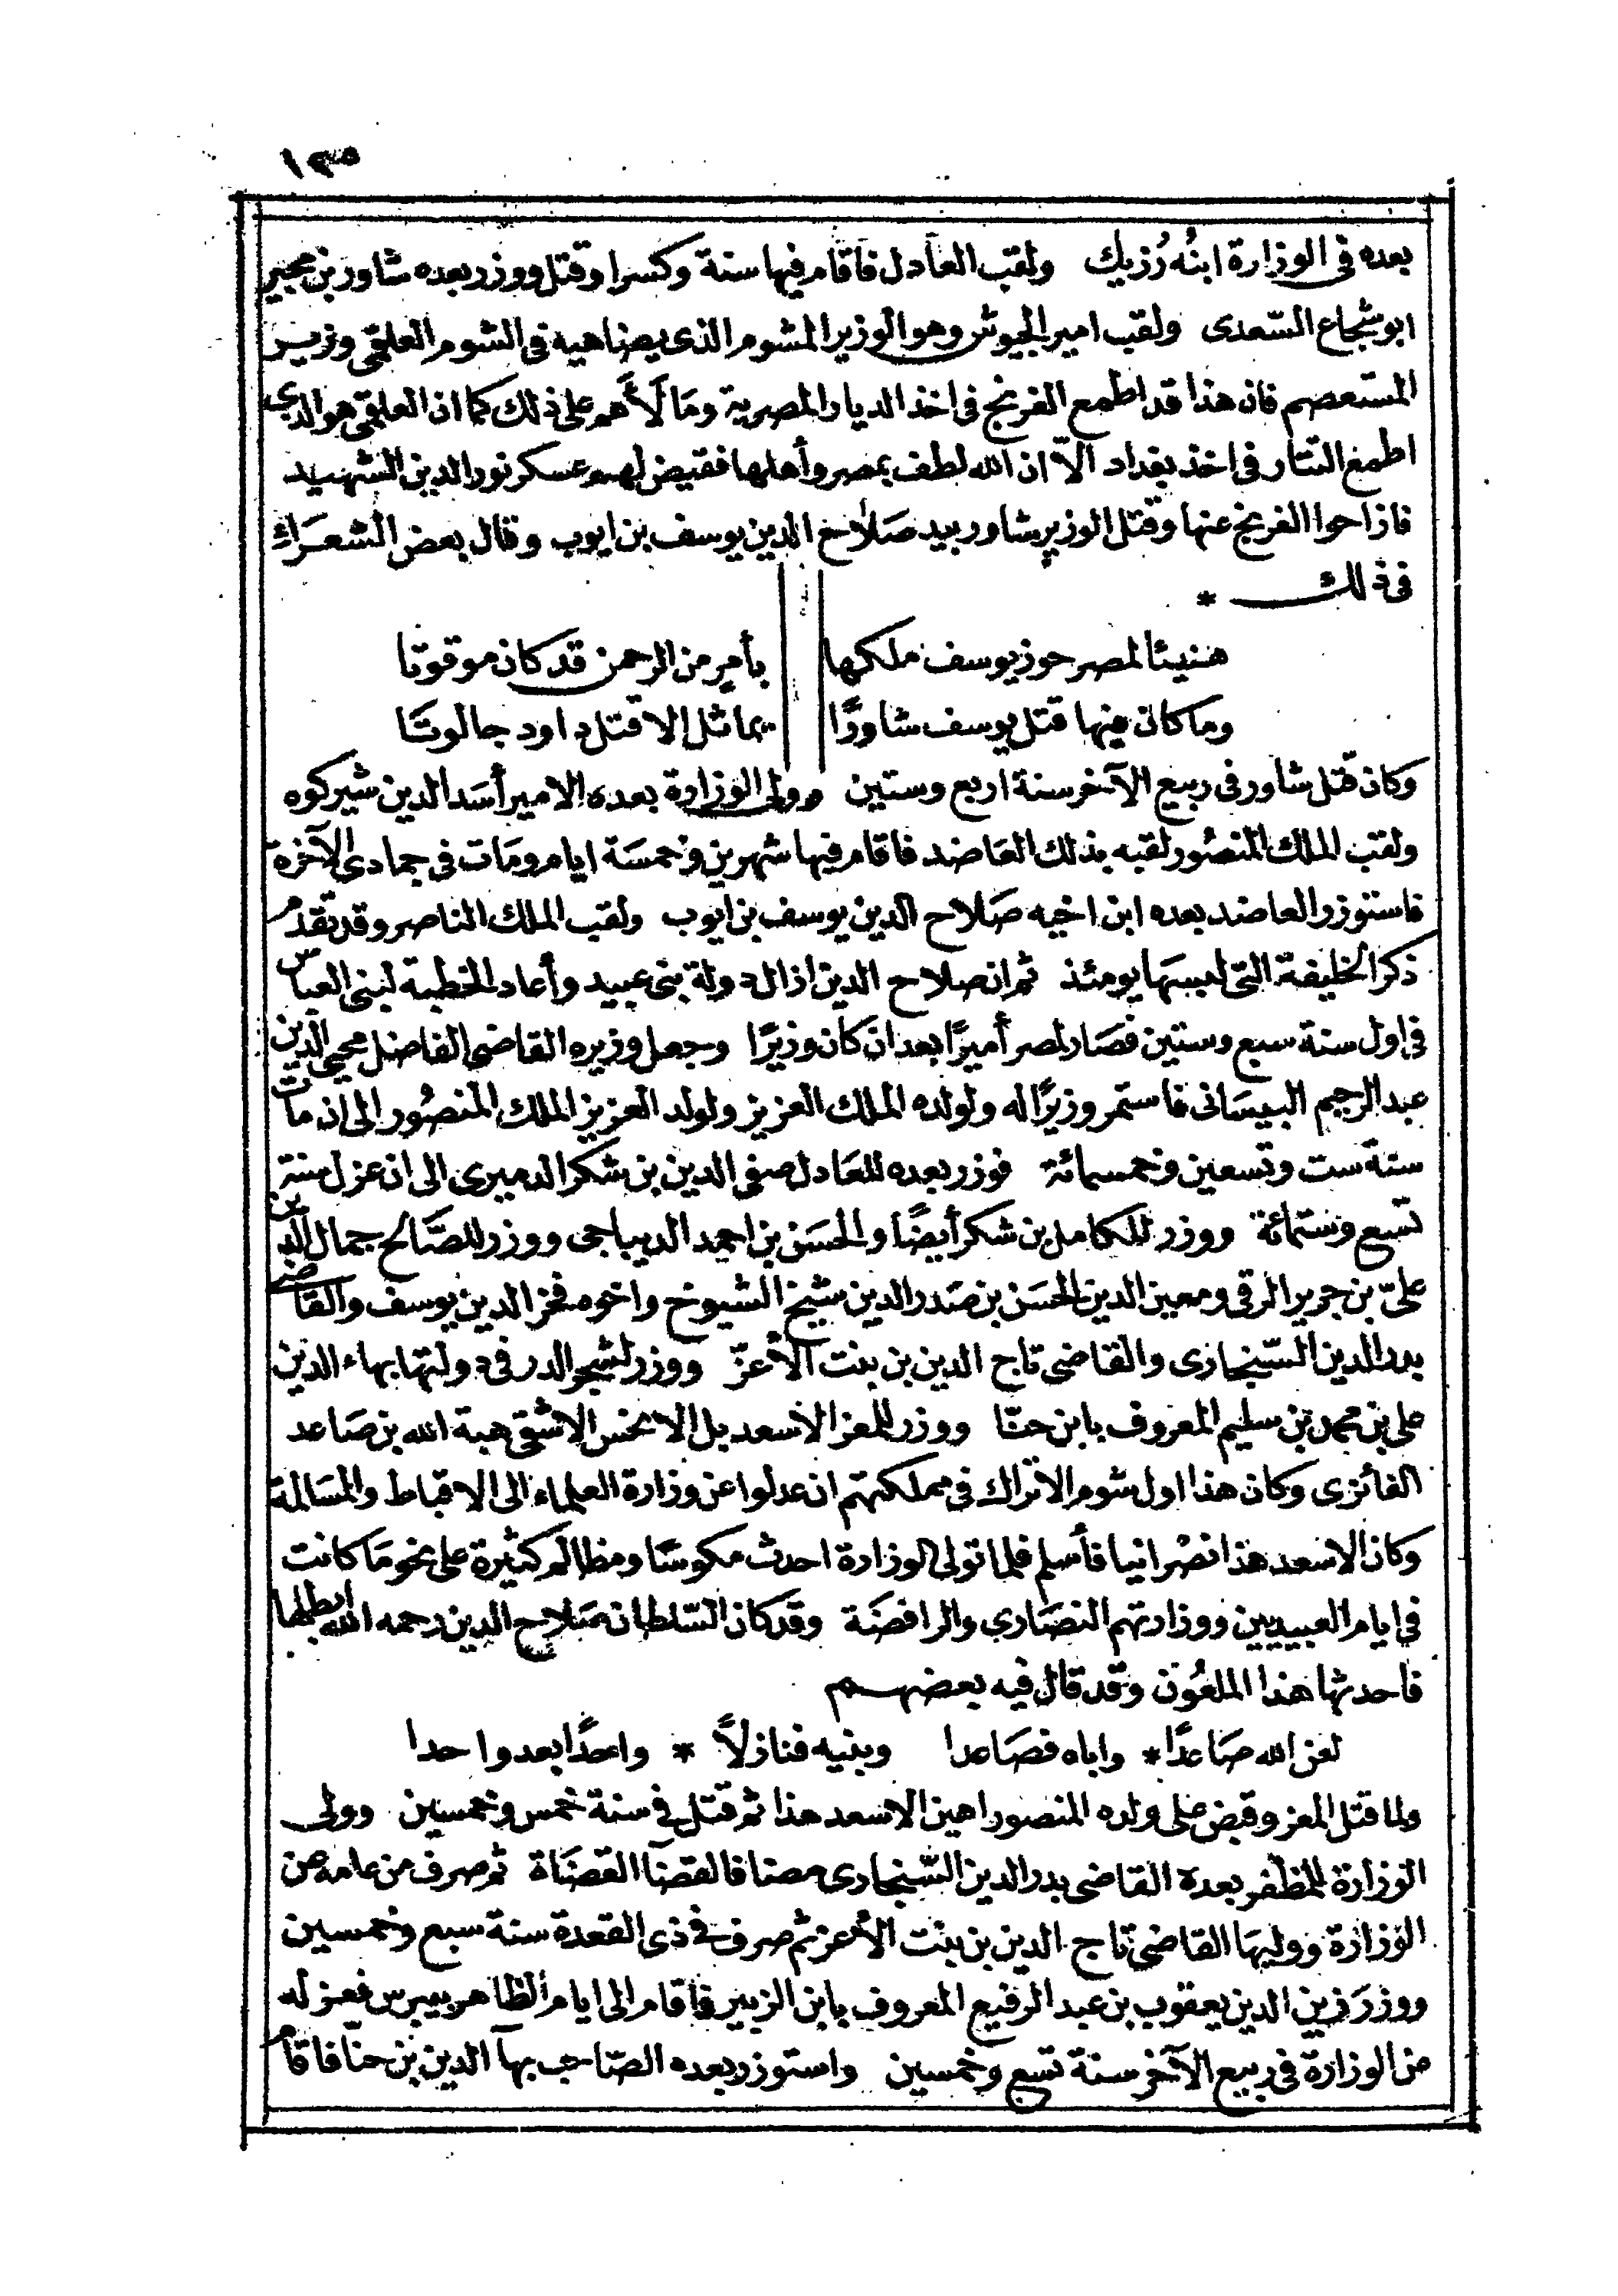 ١٣٥
بعده فى الوزارة ابنُه رُزيك ولقب العادل فاقام فيها سنة وكسرا وقتل ووزر بعده شاور بن مجير
ابو شجاع السّعدى ولقب امير الجيوش وهو الوزير المشوم الذى يضاهيه فى الشوم العلقمى وزير
المستعصم فان هذا قد اطمع الفرنج فى اخذ الديار المصرية ومَالَأَهم على ذلك كما ان العلقمى هو الذي
اطمع التتار فى اخذ بغداد الاّ ان الله لطف بمصر وأهلها فقيض لهم عسكر نور الدين الشهيد
فازاحوا الفرنج عنها وقتل الوزير شاور بيد صَلاح الدين يوسف بن ايوب وقال بعض الشعرَاء
فى ذلك *
هنيئا لمصر حوز يوسف ملكها بأمرٍ من الرحمن قد كان موقوتا
وما كان فيها قتل يوسف شاورًا يماثل الا قتل داود جالوتَا
وكان قتل شاور فى ربيع الآخر سنة اربع وستين وولى الوزارة بعده الامير أسَد الدين شيركوه
ولقب الملك المنصُور لقبه بذلك العَاضد فاقام فيها شهرين وخمسَة ايام ومَات فى جمادى الآخرة
فاستوزر العاضد بعده ابن اخيه صَلاح الدين يوسف بن ايوب ولقب الملك الناصر وقد تقدم
ذكر الخليفة التى لبسها يومئذ ثم ان صلاح الدين ازال دولة بنى عبيد وأعاد الخطبة لبنى العباس
فى اول سنة سبع وستين فصَار لمصر أميرًا بعد ان كان وزيرًا وجعل وزيره القاضى الفاضل محيى الدين
عبد الرحيم البيسَانى فاستمر وزيرًا له ولولده الملك العزيز ولولد العزيز الملك المنصُور الى ان مات
سنة ست وتسعين وخمسمائة فوزر بعده للعَادل صفى الدين بن شكر الدميرى الى ان عزل سنة
تسع وستمائة ووزر للكامل بن شكر أيضًا والحسَن بن احمد الديباجى ووزر للصَّالح جمال الدين
علىّ بن جرير الرقى ومعين الدين الحسَن بن صَدر الدين شيخ الشيوخ واخوه فخر الدين يوسف والقاضى
بدر الدين السّنجارى والقاضى تاج الدين بن بنت الأعزّ ووزر لشجر الدر فى دولتها بهاء الدين
على بن محمد بن سليم المعروف بابن حنّا ووزر للمعز الأسعد بل الانحس الاشقى هبة الله بن صَاعد
الفائزى وكان هذا اول شوم الاتراك فى مملكتهم ان عدلوا عن وزارة العلماء الى الاقباط والمسَالمة
وكان الاسعد هذا نصْرانيا فأسلم فلما تولى الوزارة احدث مكوسًا ومظالم كثيرة على نحو مَا كانت
فى ايام العبيديين ووزارتهم النصَارى والرافضَة وقد كان السّلطان صَلاح الدين رحمه الله ابطلها
فاحدثها هذا الملعُون وقد قال فيه بعضهم
لعن الله صَاعدًا * واباه فصَاعدا وبنيه فنازلاً * واحدًا بعد واحدا
ولما قتل المعز وقبض على ولده المنصور اهين الاسعد هذا ثم قتل فى سنة خمس وخمسين وولى
الوزارة للمظفر بعده القاضى بدر الدين السّنجارى مضافا لقضَآ القضَاة ثم صرف من عامه من
الوزارة ووليها القاضى تاج الدين بن بنت الأعز ثم صرف فى ذى القعدة سنة سبع وخمسين
ووزرَ زين الدين يعقوب بن عبد الرفيع المعروف بابن الزبير فاقام الى ايام الظاهر بيبرس فعزله
من الوزارة فى ربيع الآخر سنة تسع وخمسين واستوزر بعده الصّاحب بهآ الدين بن حنّا فاقام